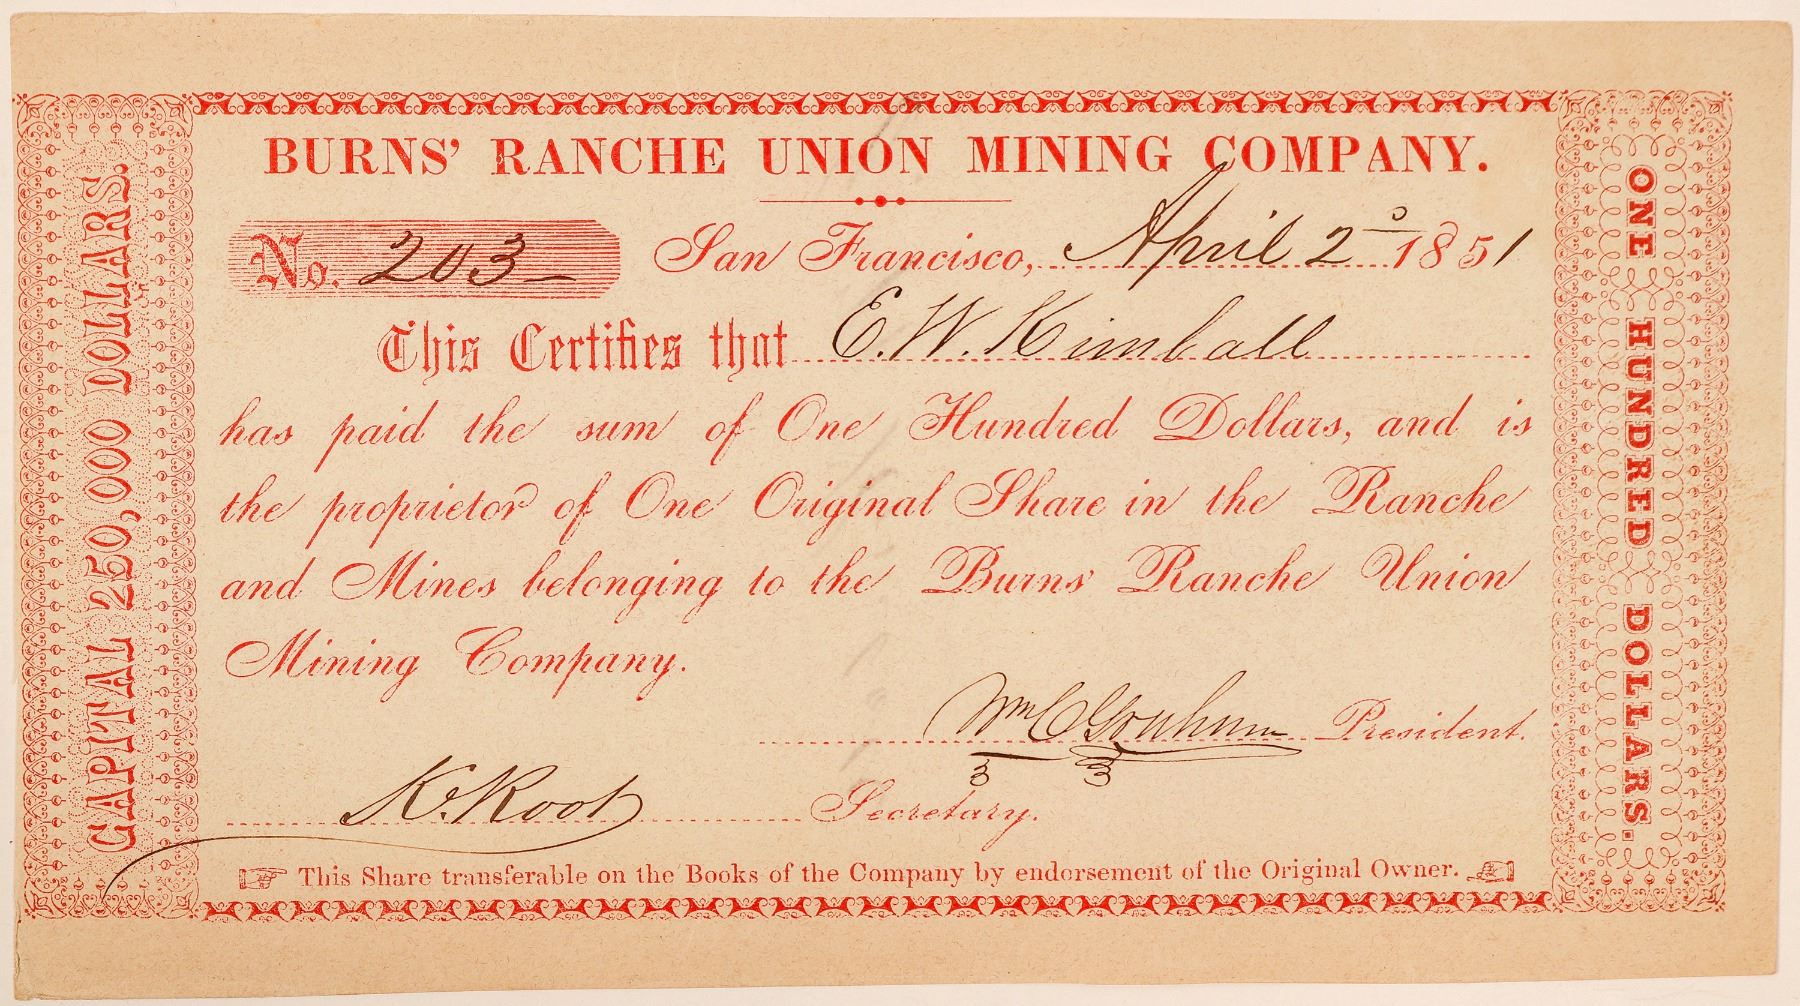 BURNS' RANCHE UNION MINING COMPANY.
No. 203
San Francisco, April 2d 1851
This Certifies that E. W. Kimball
has paid the sum of One Hundred Dollars, and is
the proprietor of One Original Share in the Ranche
and Mines belonging to the Burns' Ranche Union
Mining Company.
Wm C Graham President.
K. Root Secretary.
This Share transferable on the Books of the Company by endorsement of the Original Owner.
CAPITAL 250,000 DOLLARS.
ONE HUNDRED DOLLARS.